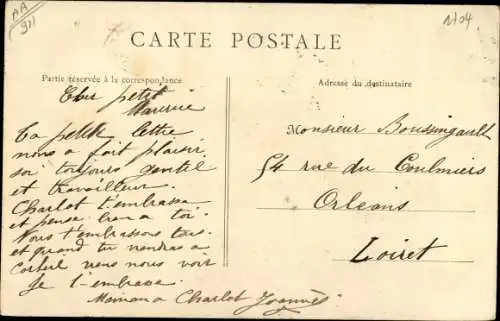 AA
911
1704
CARTE POSTALE
Partie réservée à la correspondance
Adresse du destinataire
Cher petit
Maurice
Ta petite lettre
nous a fait plaisir
soi toujours gentil
et travailleur
Charlot t'embrasse
et pense bien a toi
Nous t'embrassons tous
et quand tu viendras a
Corbeil viens nous voir
Je t'embrasse
Maman a Charlot
Monsieur Boussingault
54 rue du Coulmiers
Orleans
Loiret